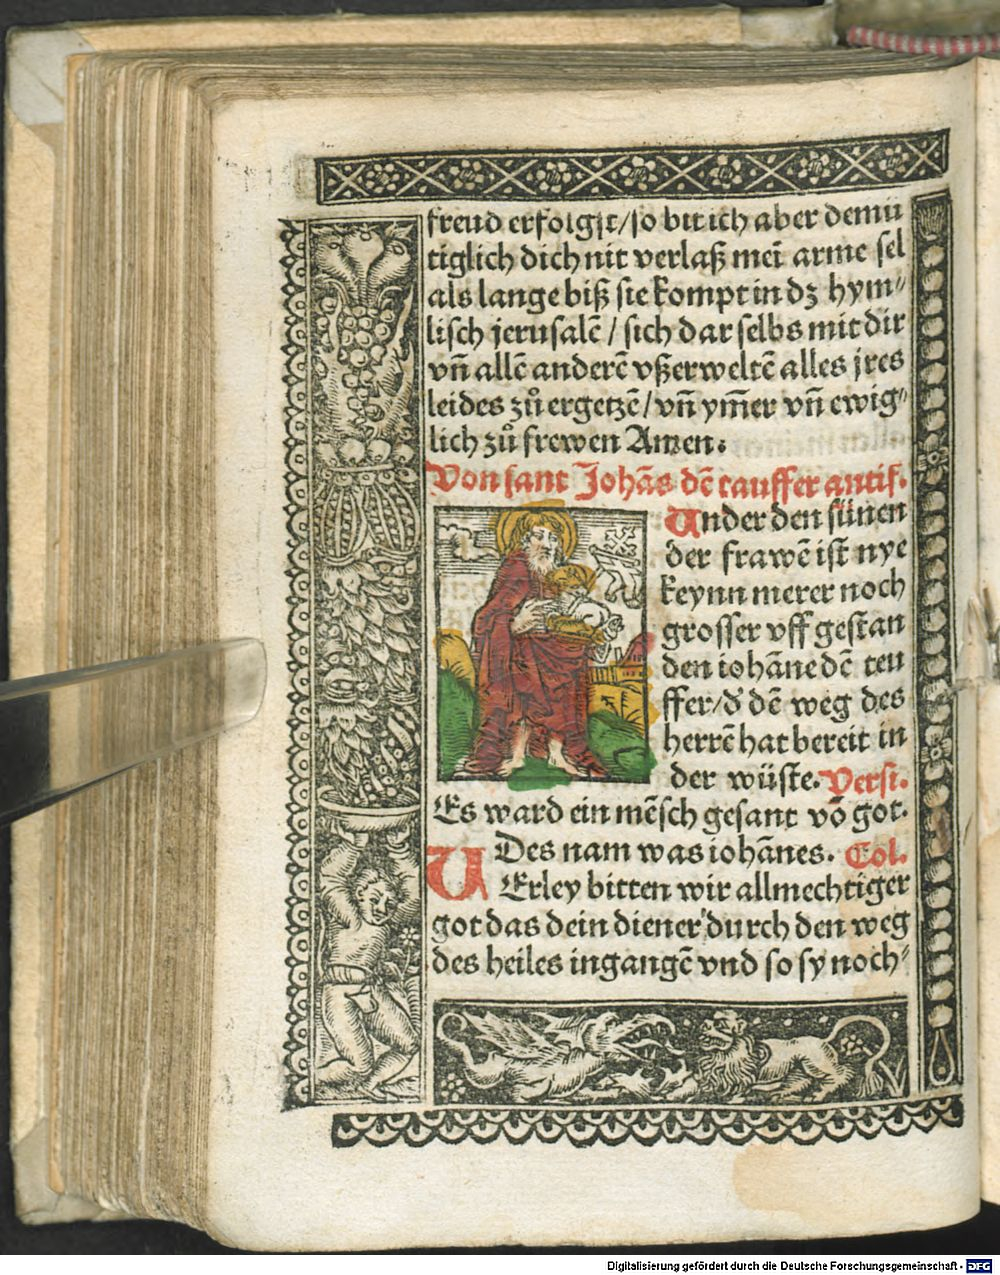 freud erfolgst/so bit ich aber demü
tiglich dich nit verlaß mei᷑ arme sel
als lange biß sie kompt in dz hym⸗
lisch jerusalē / sich dar selbs mit dir
vn̄ allē anderē vßerweltē alles jres
leides zů ergetzē/vn̄ ym̄er vn̄ ewig⸗
lich zů frewen Amen.
Von sant Johās dē tauffer antif.
Under den sünen
der frawē ist nye
keynn merer noch
grosser vff gestan
den iohāne dē teu
ffer/d᷑ dē weg des
herrē hat bereit in
der wüste. Versi.
Es ward ein mēsch gesant vō got.
Des nam was iohānes. Col.
VErley bitten wir allmechtiger
got das dein diener durch den weg
des heiles ingangē vnd so sy noch⸗
Digitalisierung gefördert durch die Deutsche Forschungsgemeinschaft - DFG